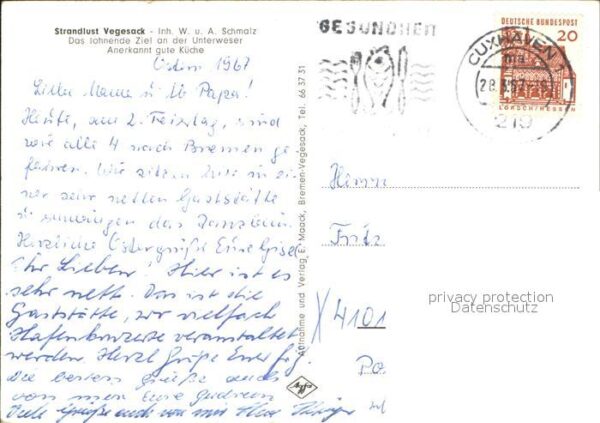 Strandlust Vegesack - Inh. W. u. A. Schmalz
Das lohnende Ziel an der Unterweser
Anerkannt gute Küche
Ostern 1967
Liebe Mama u. lb. Papa!
Heute, am 2. Feiertag, sind
wir alle 4 nach Bremen ge
fahren. Wir sitzen hier in ei
ner sehr netten Gaststätte
u. schwingen das Tanzbein.
Herzliche Ostergrüße Eure Gisel
Ihr Lieben! Hier ist es
sehr nett. Das ist die
Gaststätte, wo vielfach
Hafenkonzerte veranstaltet
werden. Herzl. Grüße Euer
Die besten Grüße auch
von mir Eure Gudrun
Viele Grüße auch von mir
Aufnahme und Verlag E. Maack, Bremen-Vegesack, Tel. 66 37 31
Agfa
GESUNDHEIT
CUXHAVEN 1
219
DEUTSCHE BUNDESPOST
20
LORSCH/HESSEN
Herrn
Fritz
X 4101
privacy protection
Datenschutz